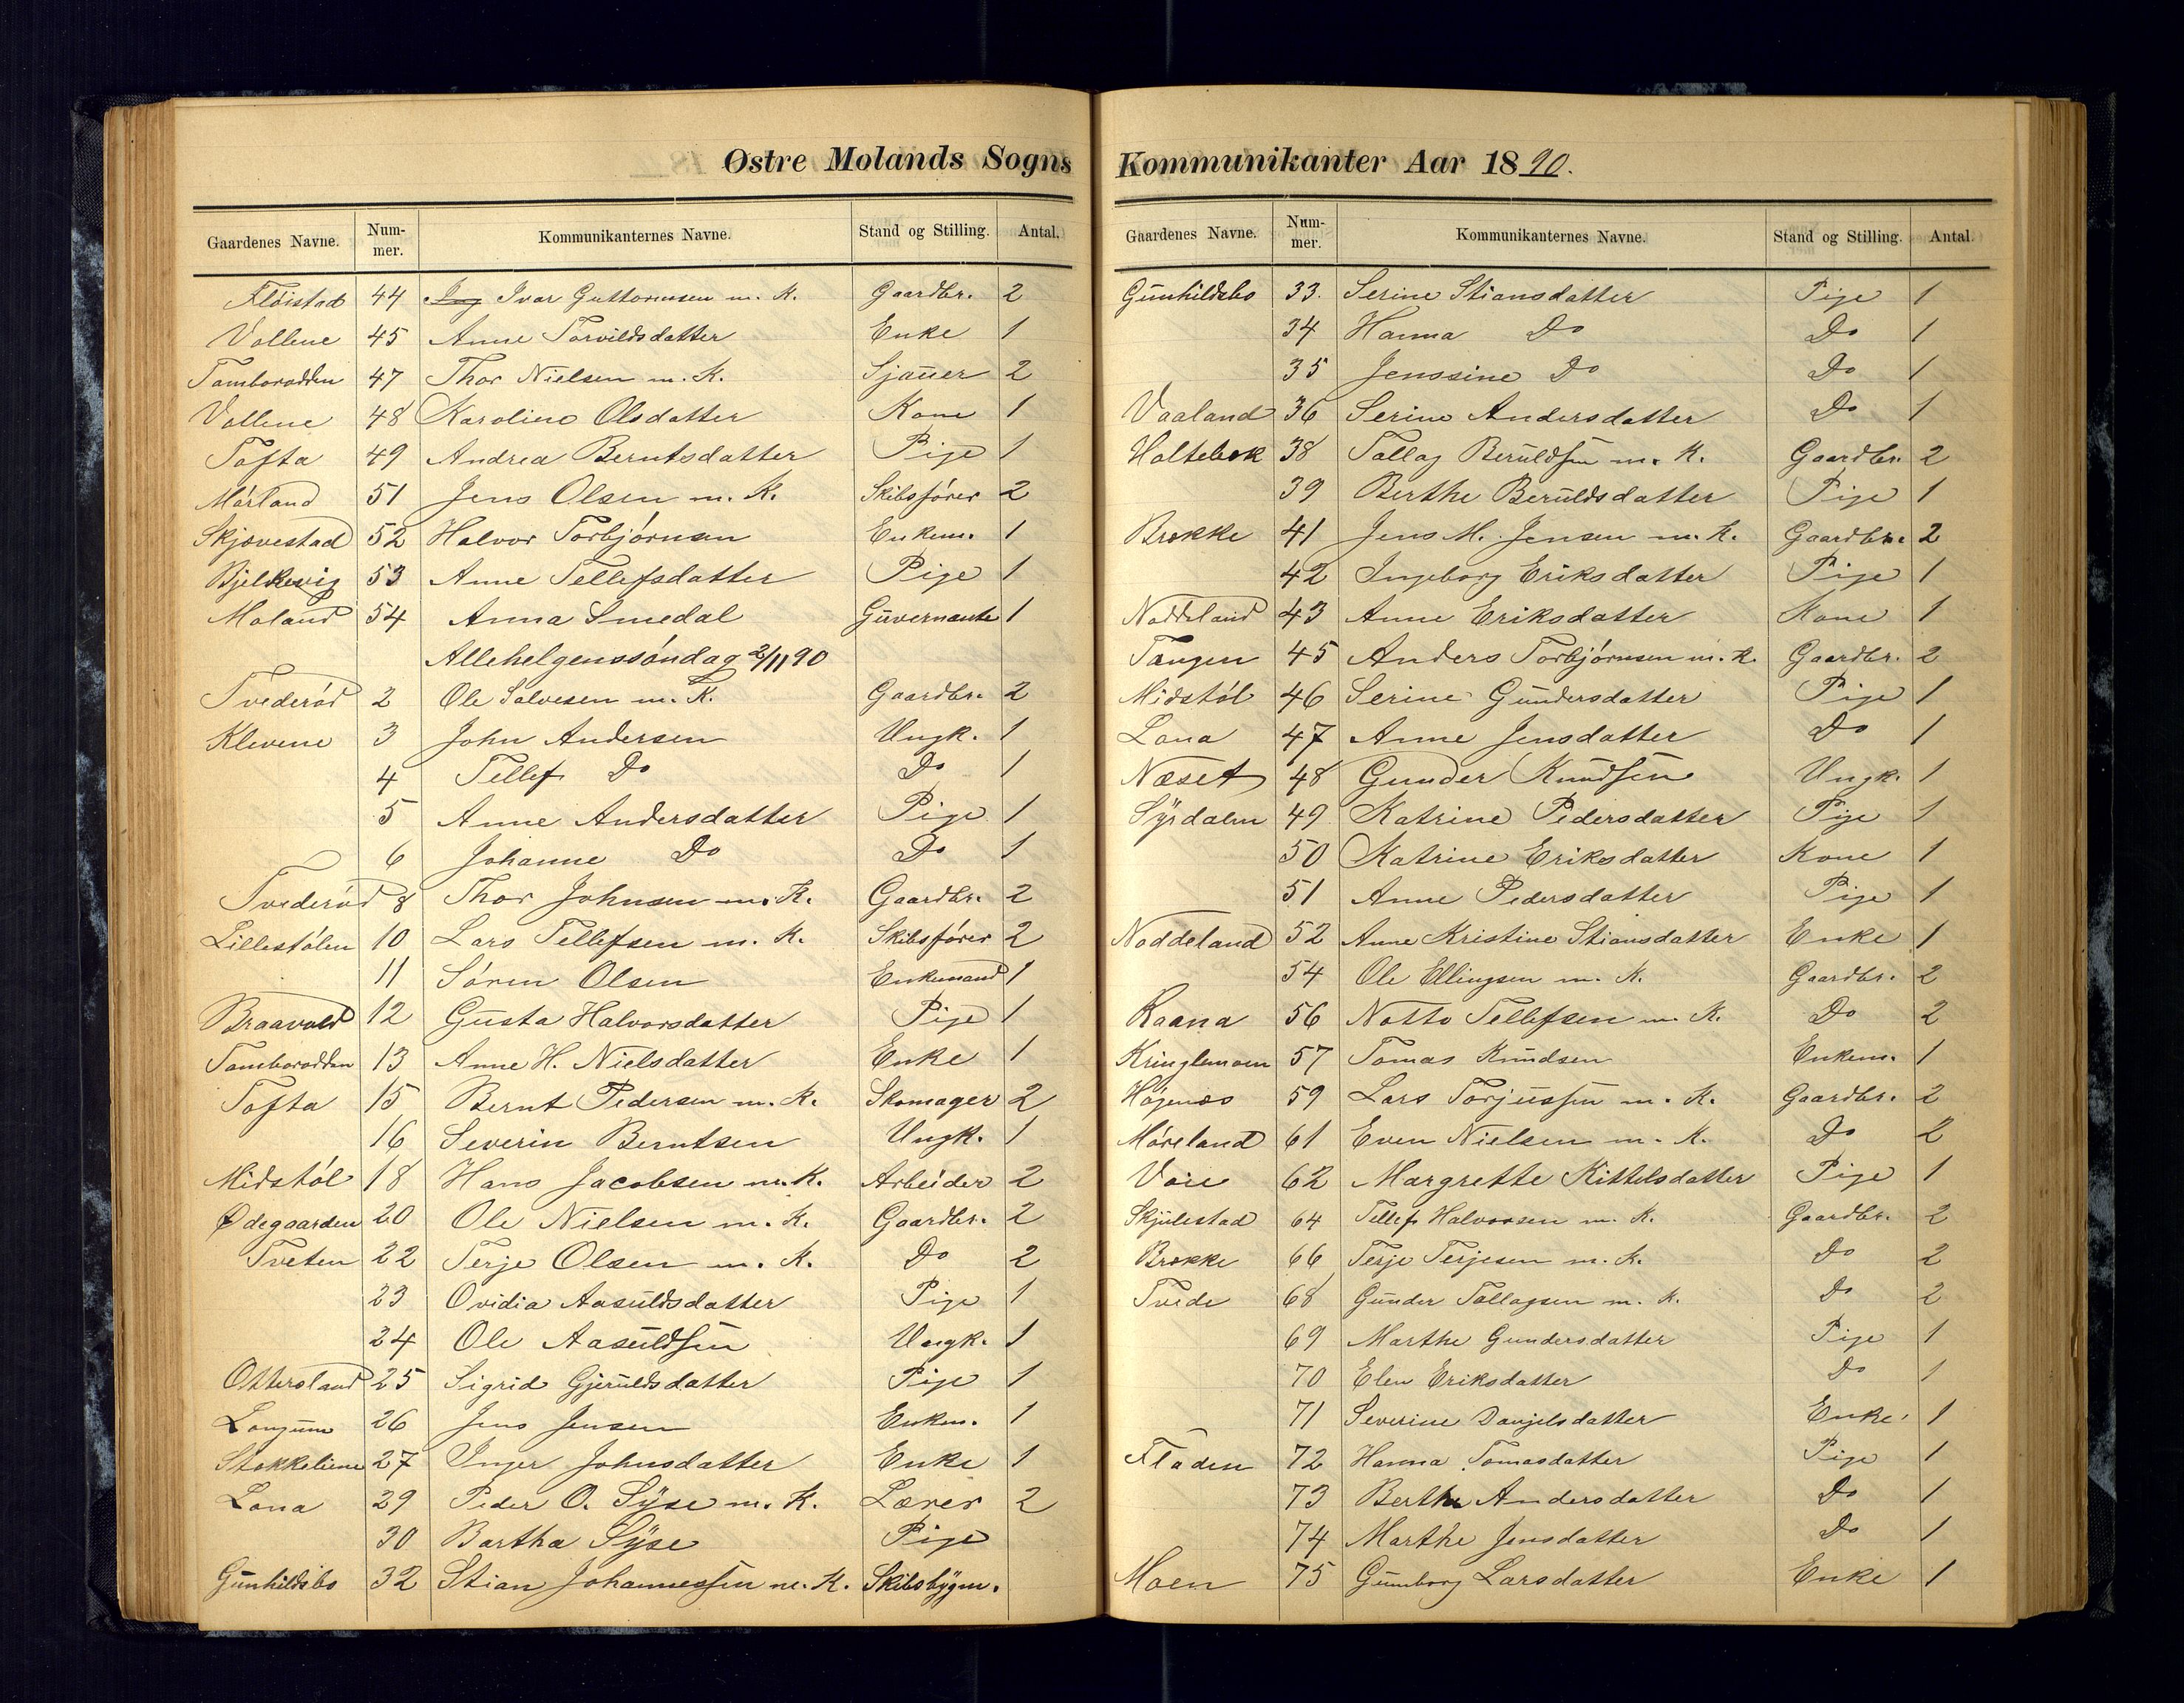 Østre Molands Sogns
Gaardenes Navne. Num-mer. Kommunikanternes Navne. Stand og Stilling. Antal.
Fløistad 44 Ivar Guttormsen m. K. Gaardbr. 2
Vollene 45 Anne Torvildsdatter Enke 1
Tamborodden 47 Thor Nielsen m. K. Sjauer 2
Vollene 48 Karoline Olsdatter Kone 1
Tofta 49 Andrea Berntsdatter Pige 1
Mørland 51 Jens Olsen m. K. Skibsfører 2
Skjævestad 52 Halvor Torbjørnsen Enkem. 1
Bjelkevig 53 Anne Tellefsdatter Pige 1
Moland 54 Anna Smedal Guvernante 1
Allehelgenssøndag 2/11 90
Tvederød 2 Ole Salvesen m. K. Gaardbr. 2
Klevene 3 John Andersen Ungk. 1
4 Tellef Do Do 1
5 Anne Andersdatter Pige 1
6 Johanne Do Do 1
Tvederød 8 Thor Johnsen m. K. Gaardbr. 2
Lillestølen 10 Lars Tellefsen m. K. Skibsfører 2
11 Søren Olsen Enkemand 1
Braavold 12 Gusta Halvorsdatter Pige 1
Tamborodden 13 Anne H. Nielsdatter Enke 1
Tofta 15 Bernt Pedersen m. K. Skomager 2
16 Severin Berntsen Ungk. 1
Midstøl 18 Hans Jacobsen m. K. Arbeider 2
Ødegaarden 20 Ole Nielsen m. K. Gaardbr. 2
Tveten 22 Terje Olsen m. K. Do 2
23 Ovidia Aasuldsdatter Pige 1
24 Ole Aasuldsen Ungk. 1
Ottersland 25 Sigrid Gjeruldsdatter Pige 1
Longum 26 Jens Jensen Enkem. 1
Stokkeliene 27 Inger Johnsdatter Enke 1
Lona 29 Peder O. Syse m. K. Lærer 2
30 Bartha Syse Pige
Gunhildsbo 32 Stian Johannessen m. K. Skibsbygm.
Kommunikanter Aar 1890.
Gaardenes Navne. Num-mer. Kommunikanternes Navne. Stand og Stilling. Antal.
Gunhildsbo 33. Serine Stiansdatter Pige 1
34 Hanna Do Do 1
35 Jenssine Do Do 1
Vaaland 36 Serine Andersdatter Do 1
Holtebek 38 Tallag Beruldsen m. K. Gaardbr. 2
39 Berthe Beruldsdatter Pige 1
Brekke 41 Jens M. Jensen m. K. Gaardbr. 2
42 Ingeborg Eriksdatter Pige 1
Noddeland 43 Anne Eriksdatter Kone 1
Tangen 45 Anders Torbjørnsen m. K. Gaardbr. 2
Midstøl 46 Serine Gundersdatter Pige 1
Lona 47 Anne Jensdatter Do 1
Næset 48 Gunder Knudsen Ungk. 1
Syrdalen 49 Katrine Pedersdatter Pige 1
50 Katrine Eriksdatter Kone 1
51 Anne Pedersdatter Pige 1
Noddeland 52 Anne Kristine Stiansdatter Enke 1
54 Ole Ellingsen m. K. Gaardbr. 2
Raana 56 Notto Tellefsen m. K. Do 2
Kringlemoen 57 Tomas Knudsen Enkem. 1
Høgenæs 59 Lars Torjussen m. K. Gaardbr. 2
Møreland 61 Even Nielsen m. K. Do 2
Voie 62 Margrette Kittelsdatter Pige 1
Skjulestad 64 Tellef Halvorsen m. K. Gaardbr. 2
Brekke 66 Terje Terjesen m. K. Do 2
Tvede 68 Gunder Tallagsen m. K. Do 2
69 Marthe Gundersdatter Pige 1
70 Elen Eriksdatter Do 1
71 Severine Danjelsdatter Enke. 1
Fladen 72 Hanna Tomasdatter Pige 1
73 Berthe Andersdatter Do 1
74 Marthe Jensdatter Do 1
Moen 75 Gunborg Larsdatter Enke 1